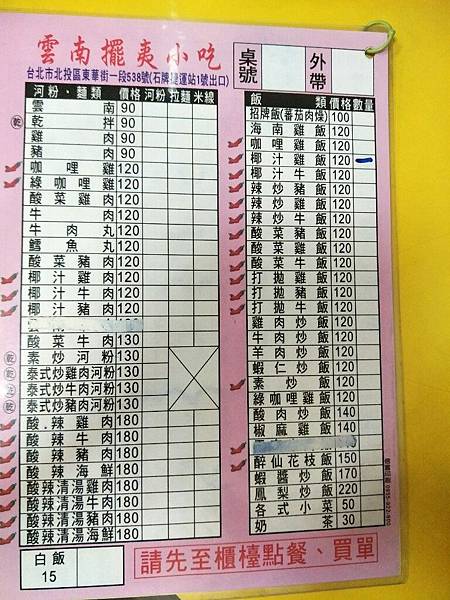 雲南擺夷小吃
台北市北投區東華街一段538號(石牌捷運站1號出口)
桌號
外帶
河粉、麵類 價格 河粉 拉麵 米線
雲南 90
乾 乾拌 90
雞肉 90
豬肉 90
咖哩雞 120
綠咖哩雞 120
酸菜雞肉 120
牛肉 120
牛肉丸 120
鱈魚丸 120
酸菜豬肉 120
椰汁雞肉 120
椰汁牛肉 120
椰汁豬肉 120
酸菜牛肉 130
乾 素炒河粉 130
乾 泰式炒雞肉河粉 130
乾 泰式炒牛肉河粉 130
乾 泰式炒豬肉河粉 130
酸.辣雞肉 180
酸辣牛肉 180
酸辣豬肉 180
酸辣海鮮 180
酸辣清湯雞肉 180
酸辣清湯牛肉 180
酸辣清湯豬肉 180
酸辣清湯海鮮 180
白飯
15
飯類 價格 數量
招牌飯(番茄肉燥) 100
海南雞飯 120
咖哩雞飯 120
椰汁雞飯 120
椰汁牛飯 120
辣炒豬飯 120
辣炒雞飯 120
辣炒牛飯 120
酸菜豬飯 120
酸菜雞飯 120
酸菜牛飯 120
打拋雞飯 120
打拋豬飯 120
打拋牛飯 120
雞肉炒飯 120
牛肉炒飯 120
羊肉炒飯 120
蝦仁炒飯 120
素炒飯 120
綠咖哩雞飯 120
酸肉炒飯 140
椒麻雞飯 140
醉仙花枝飯 150
蝦醬炒飯 170
鳳梨炒飯 220
各式小菜 50
奶茶 30
請先至櫃檯點餐、買單